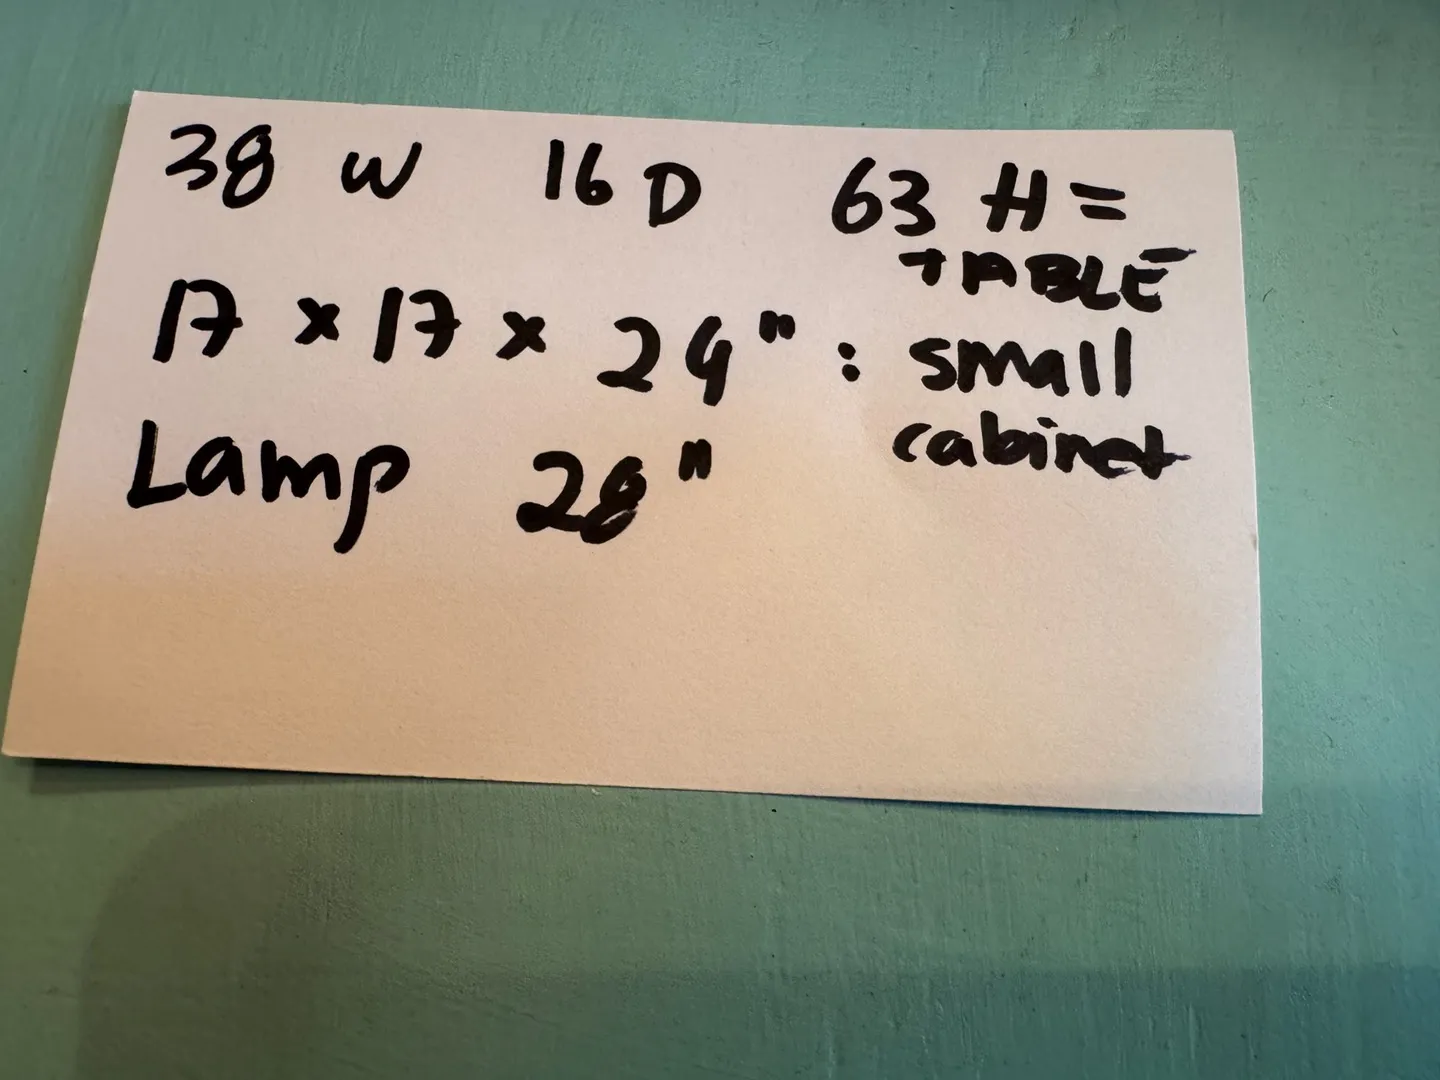 38 W 16 D 63 H =
TABLE
17 x 17 x 24" : small
cabinet
Lamp 28"